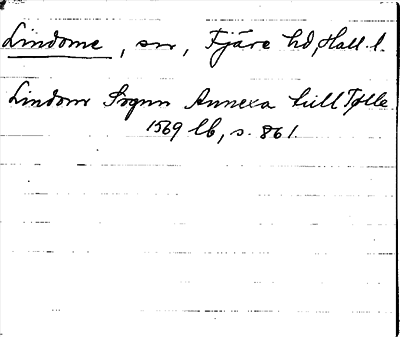 Lindome, sn, Fjäre hd, Hall. l.
Lindom Sognn Annexa till Tølle
1569 lb, s. 861.